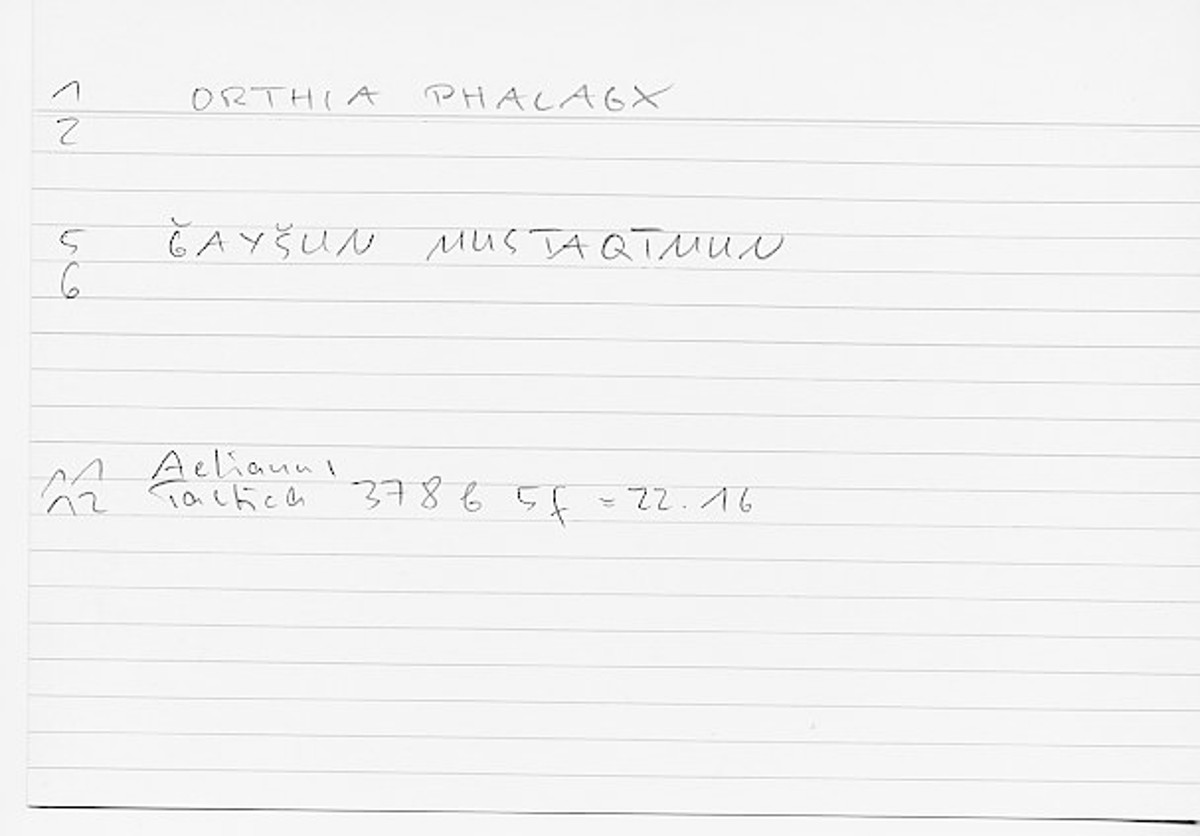 1 ORTHIA PHALAGX
2
5 ǦAYŠUN MUSTAQĪMUN
6
11 Aelianus
12 Tactica 378 b 5f = 22.16